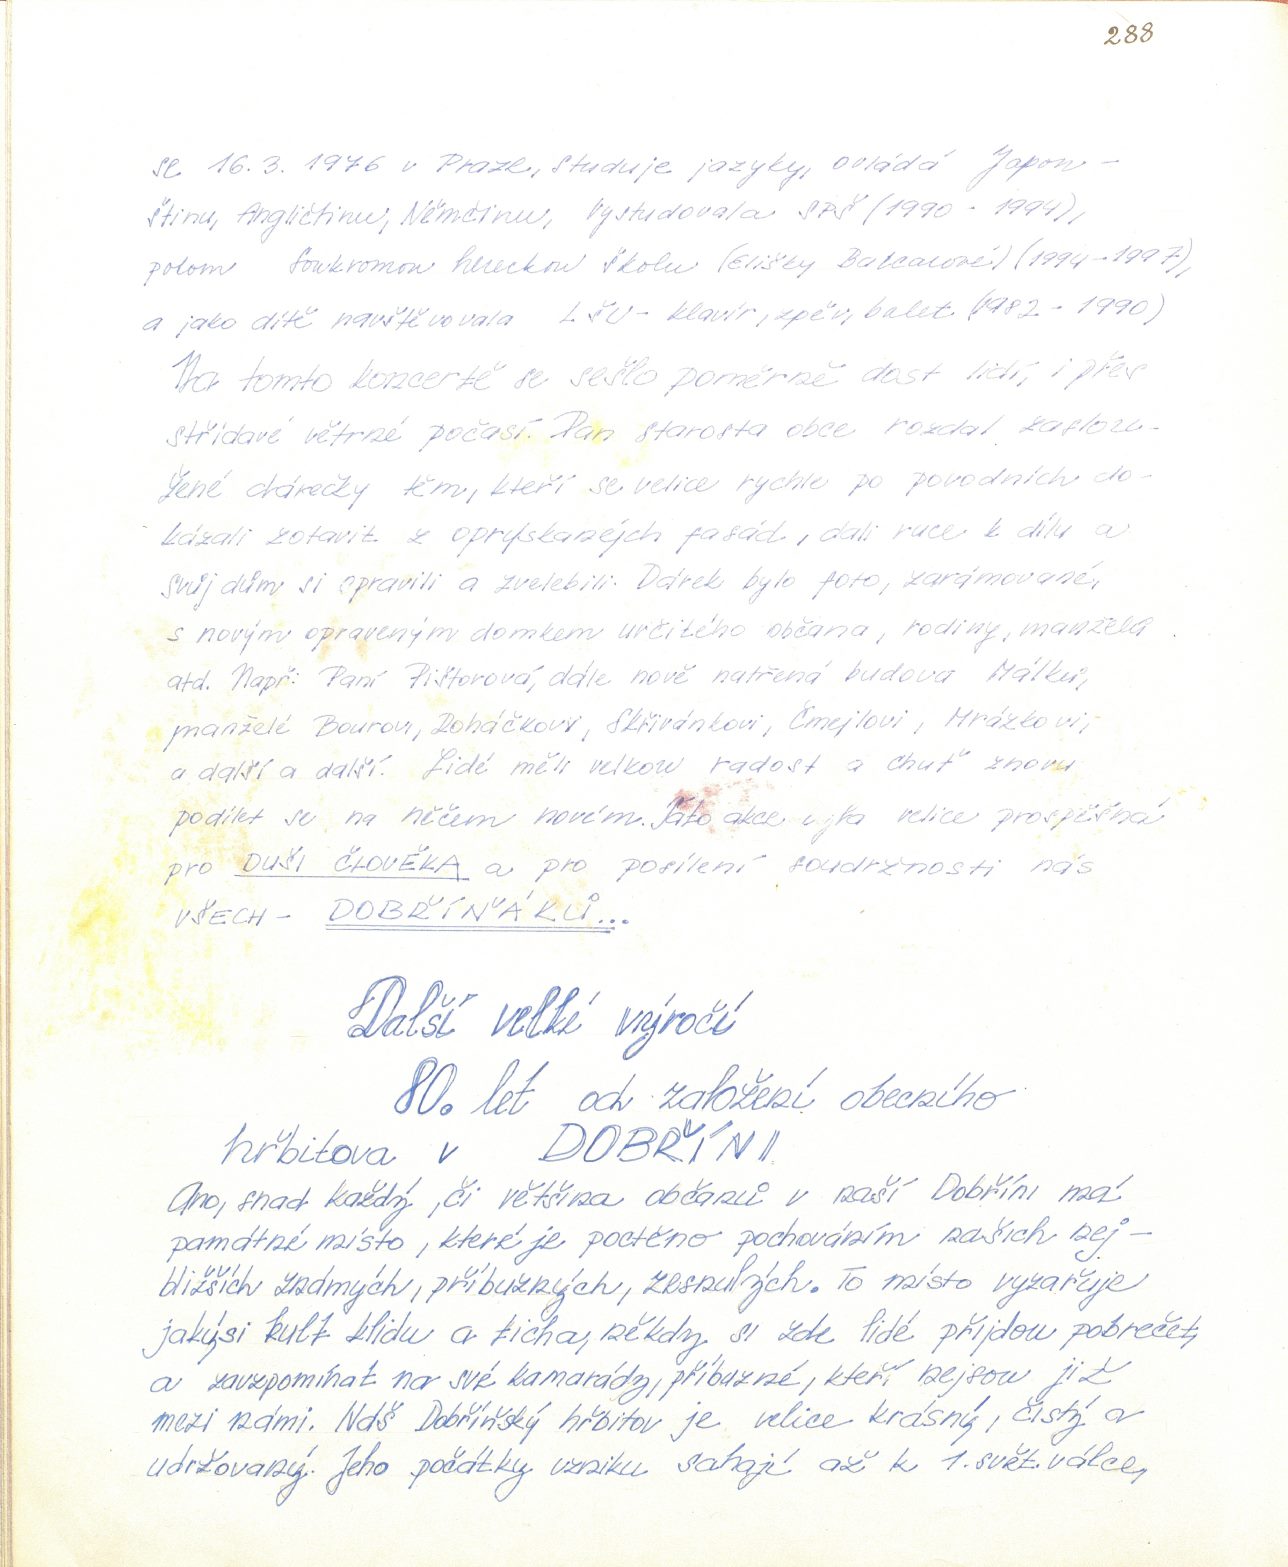 288
se 16.3. 1976 v Praze, studuje jazyky, ovládá Japon-
štinu, Angličtinu, Němčinu, Vystudovala SPŠ (1990 - 1994),
potom soukromou hereckou školu (Elišky Balcarové) (1994-1997),
a jako dítě navštěvovala LŠU - klavír, zpěv, balet (1982 - 1990)
Na tomto koncertě se sešlo poměrně dost lidí, i přes
střídavé větrné počasí. Pan starosta obce rozdal zaslou-
žené dárečky těm, kteří se velice rychle po povodních do-
kázali zotavit z oprýskaných fasád, dali ruce k dílu a
svůj dům si spravili a zvelebili. Dárek bylo foto, zarámované,
s novým opraveným domkem určitého občana, rodiny, manžela
atd. Např: Paní Pištorová, dále nově natřená budova Málků,
manželé Bourovi, Roháčkovi, Skřivánkovi, Čmejlovi, Mrázkovi,
a další a další. Lidé měli velkou radost a chuť znovu
podílet se na něčem novém. Táto akce byla velice prospěšná
pro DUŠI ČLOVĚKA a pro posílení soudržnosti nás
VŠECH - DOBŘÍŇÁKŮ...
Další velké výročí
80. let od založení obecního
hřbitova v DOBŘÍNI
Ano, snad každý, či většina občanů v naší Dobříni má
památné místo, které je poctěno pochováním našich nej-
bližších známých, příbuzných, zesnulých. To místo vyzařuje
jakýsi kult klidu a ticha, někdy si zde lidé příjdou pobrečet,
a zavzpomínat na své kamarády, příbuzné, kteří nejsou již
mezi námi. Náš Dobříňský hřbitov je velice krásný, čistý a
udržovaný. Jeho počátky vzniku sahají až k 1. svět. válce,